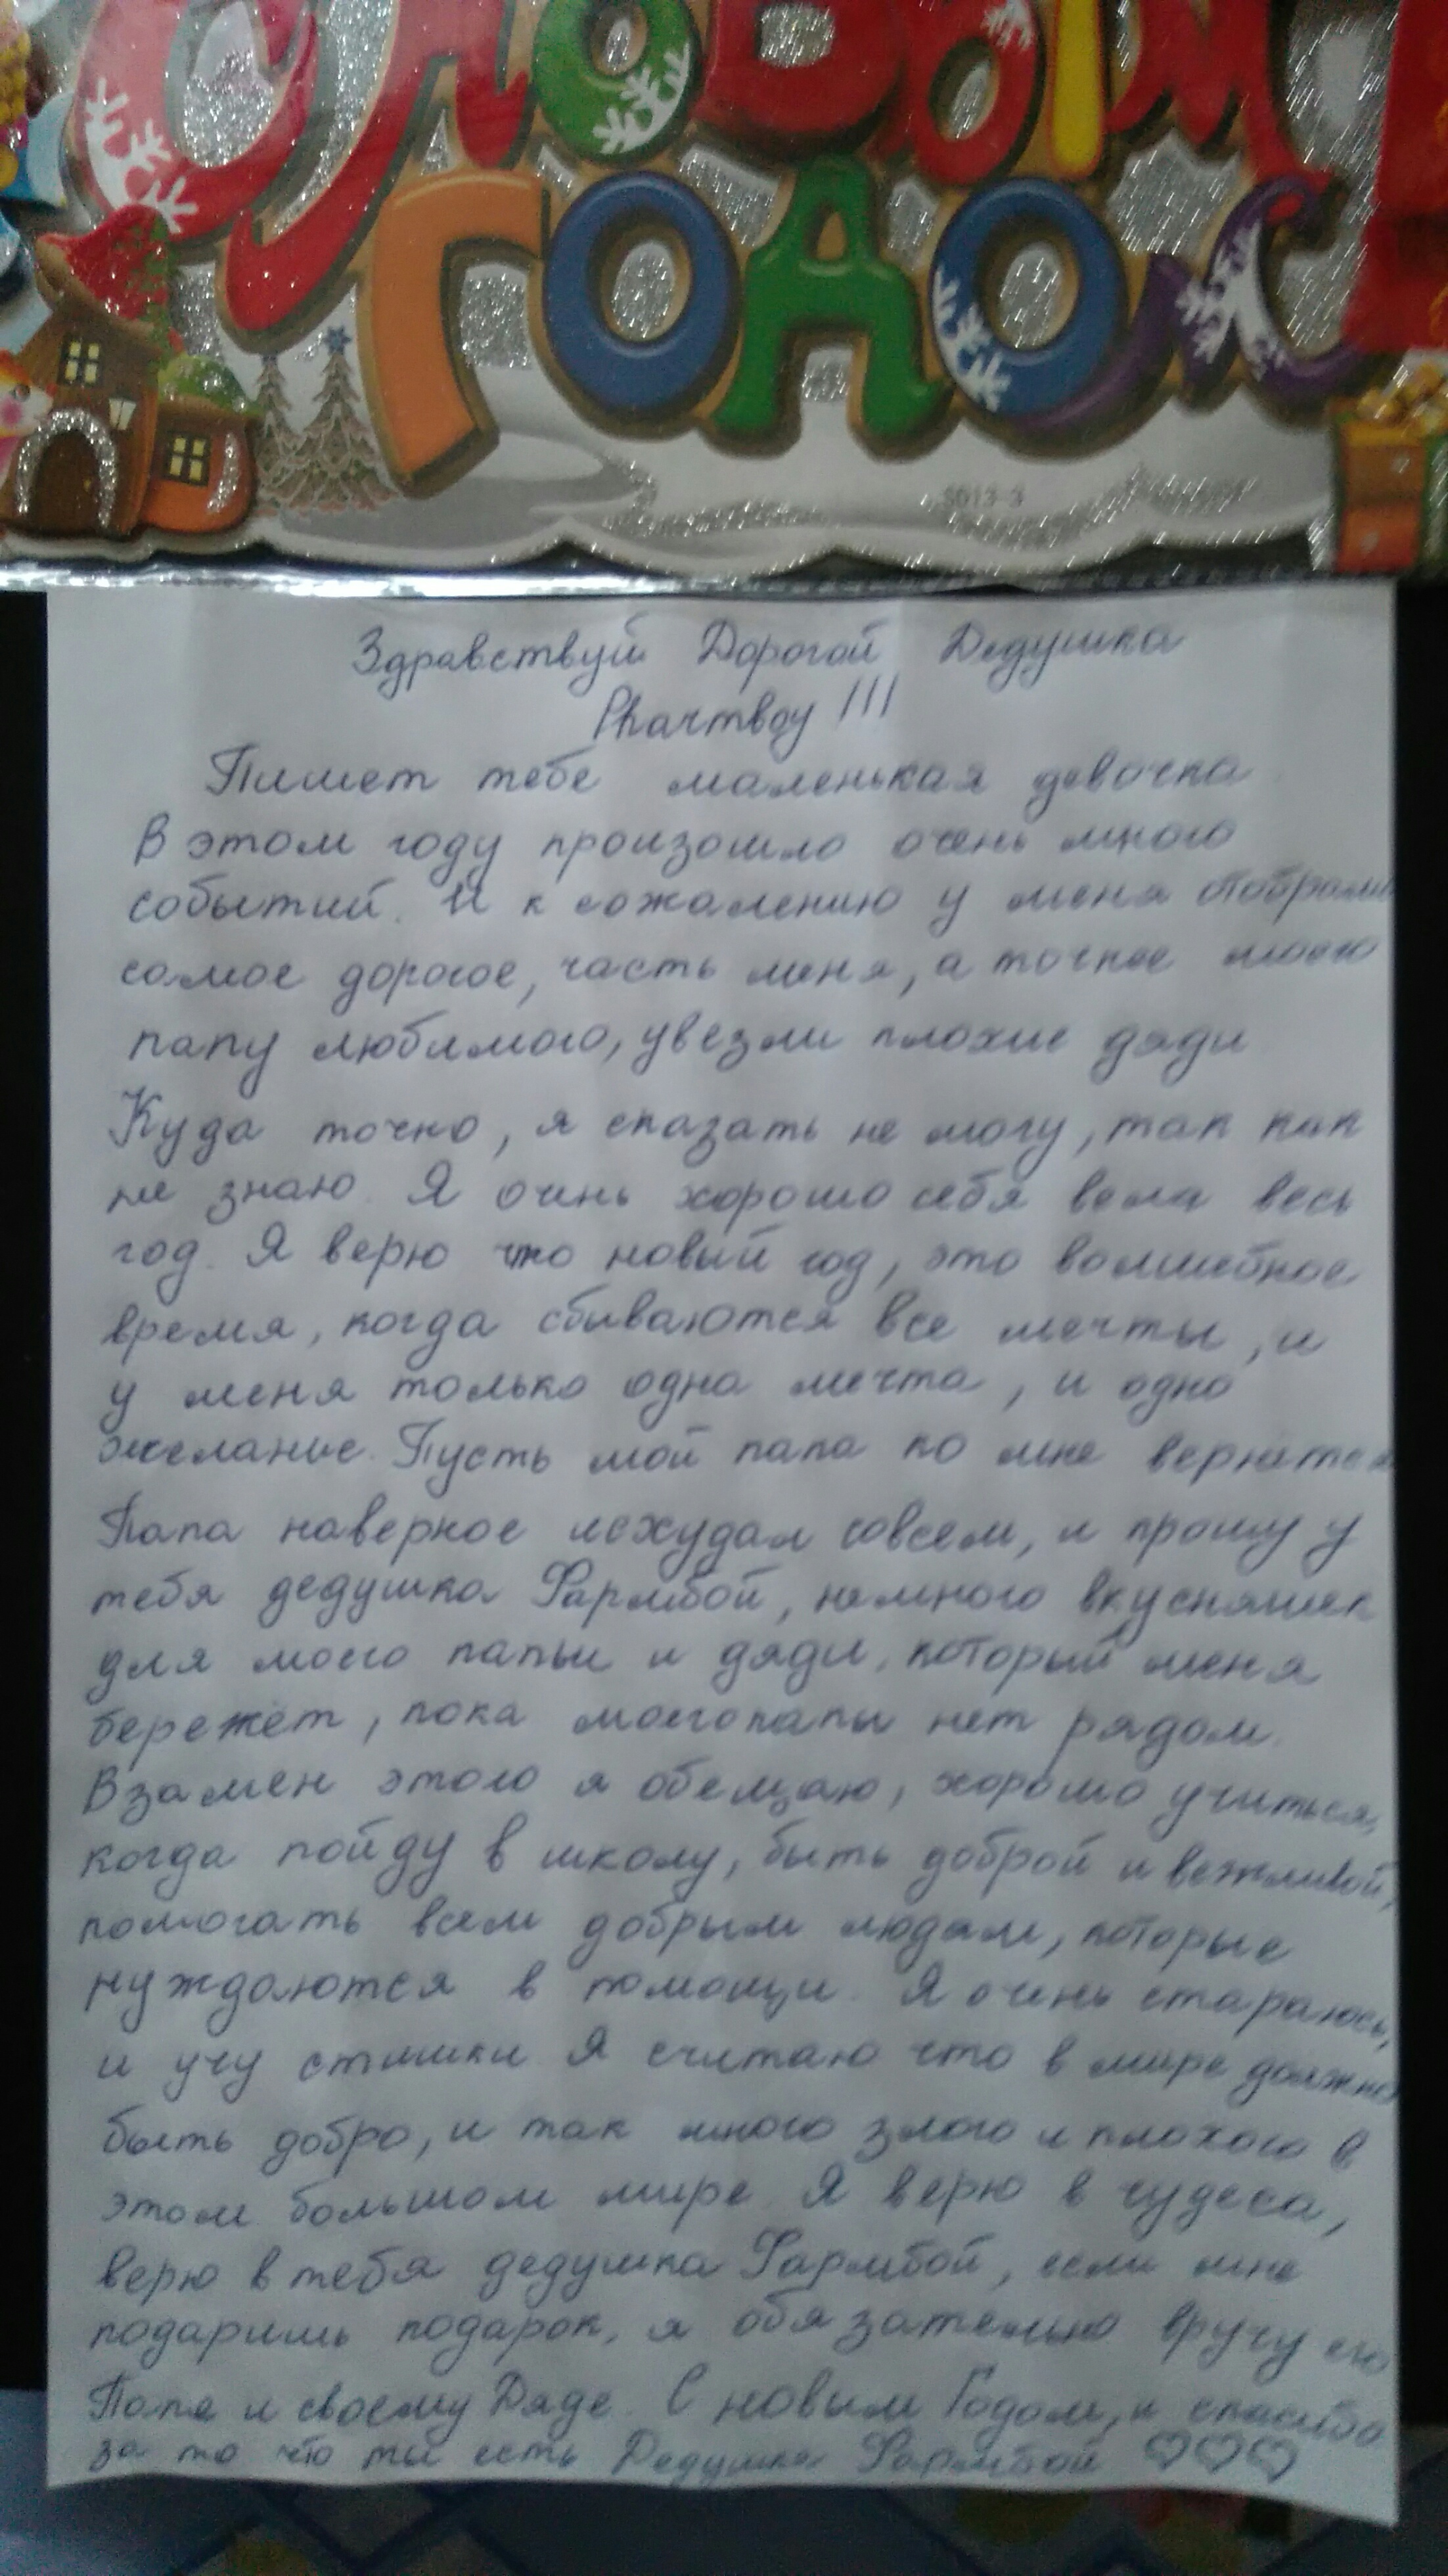 С Новым
Годом
S013-3
Здравствуй Дорогой Дедушка
Pharmboy !!!
Пишет тебе маленькая девочка
В этом году произошло очень много
событий. И к сожалению у меня отобрали
самое дорогое, часть меня, а точнее моего
папу любимого, увезли плохие дяди
Куда точно, я сказать не могу, так как
не знаю. Я очень хорошо себя вела весь
год. Я верю что новый год, это волшебное
время, когда сбываются все мечты, и
у меня только одна мечта, и одно
желание. Пусть мой папа ко мне вернется
Папа наверное исхудал совсем, и прошу у
тебя дедушка Фармбой, немного вкусняшек
для моего папы и дяди, который меня
бережёт, пока моего папы нет рядом.
Взамен этого я обещаю, хорошо учиться,
когда пойду в школу, быть доброй и вежливой,
помогать всем добрым людям, которые
нуждаются в помощи. Я очень стараюсь,
и учу стишки. Я считаю что в мире должно
быть добро, и так много злого и плохого в
этом большом мире. Я верю в чудеса,
верю в тебя дедушка Фармбой, если мне
подаришь подарок, я обязательно вручу его
Папе и своему Дяде. С новым Годом, и спасибо
за то что ты есть Дедушка Фармбой